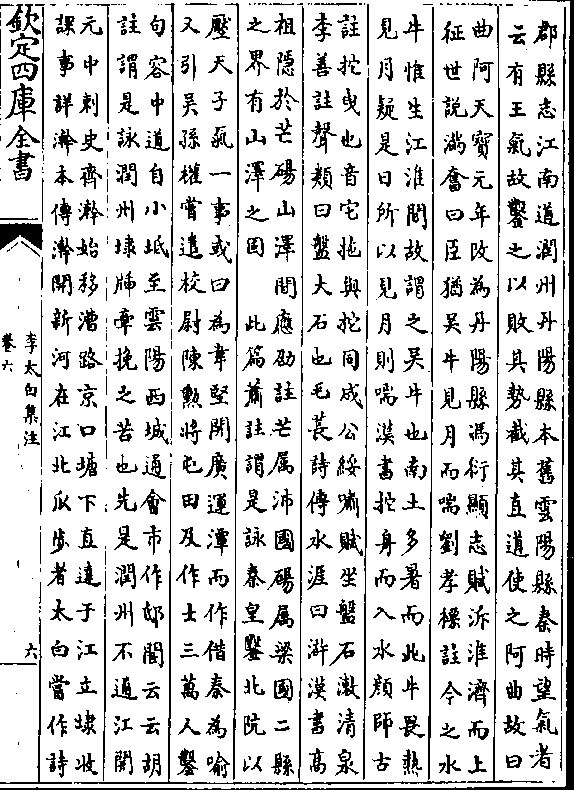 郡縣志江南道潤州丹陽縣本舊雲陽縣秦時望氣者
云有王氣故鑿之以敗其勢截其直道使之阿曲故曰
曲阿天寶元年改為丹陽縣馮衍顯志賦泝淮濟而上
征世說滿奮曰臣猶吳牛見月而喘劉孝標註今之水
牛惟生江淮間故謂之吳牛也南土多暑而此牛畏熱
見月疑是日所以見月則喘漢書拕身而入水顏師古
註拕曳也音它拖與拕同成公綏嘯賦坐盤石漱清泉
李善註聲類曰盤大石也毛萇詩傳水涯曰滸漢書高
祖隱於芒碭山澤間應劭註芒属沛國碭属梁國二縣
之界有山澤之固 此篇蕭註謂是詠秦皇鑿北阬以
壓天子氣一事或曰為韋堅開廣運潭而作借秦為喻
又引吳孫權嘗遣校尉陳勲將屯田及作士三萬人鑿
句容中道自小坻至雲陽西城通會市作邸閣云云胡
註謂是詠潤州埭牐牽挽之苦也先是潤州不通江開
元中刺史齊澣始移漕路京口塘下直達于江立埭收
課事詳澣本傳澣開新河在江北瓜步者太白嘗作詩
欽定四庫全書
李太白集注
卷六
六